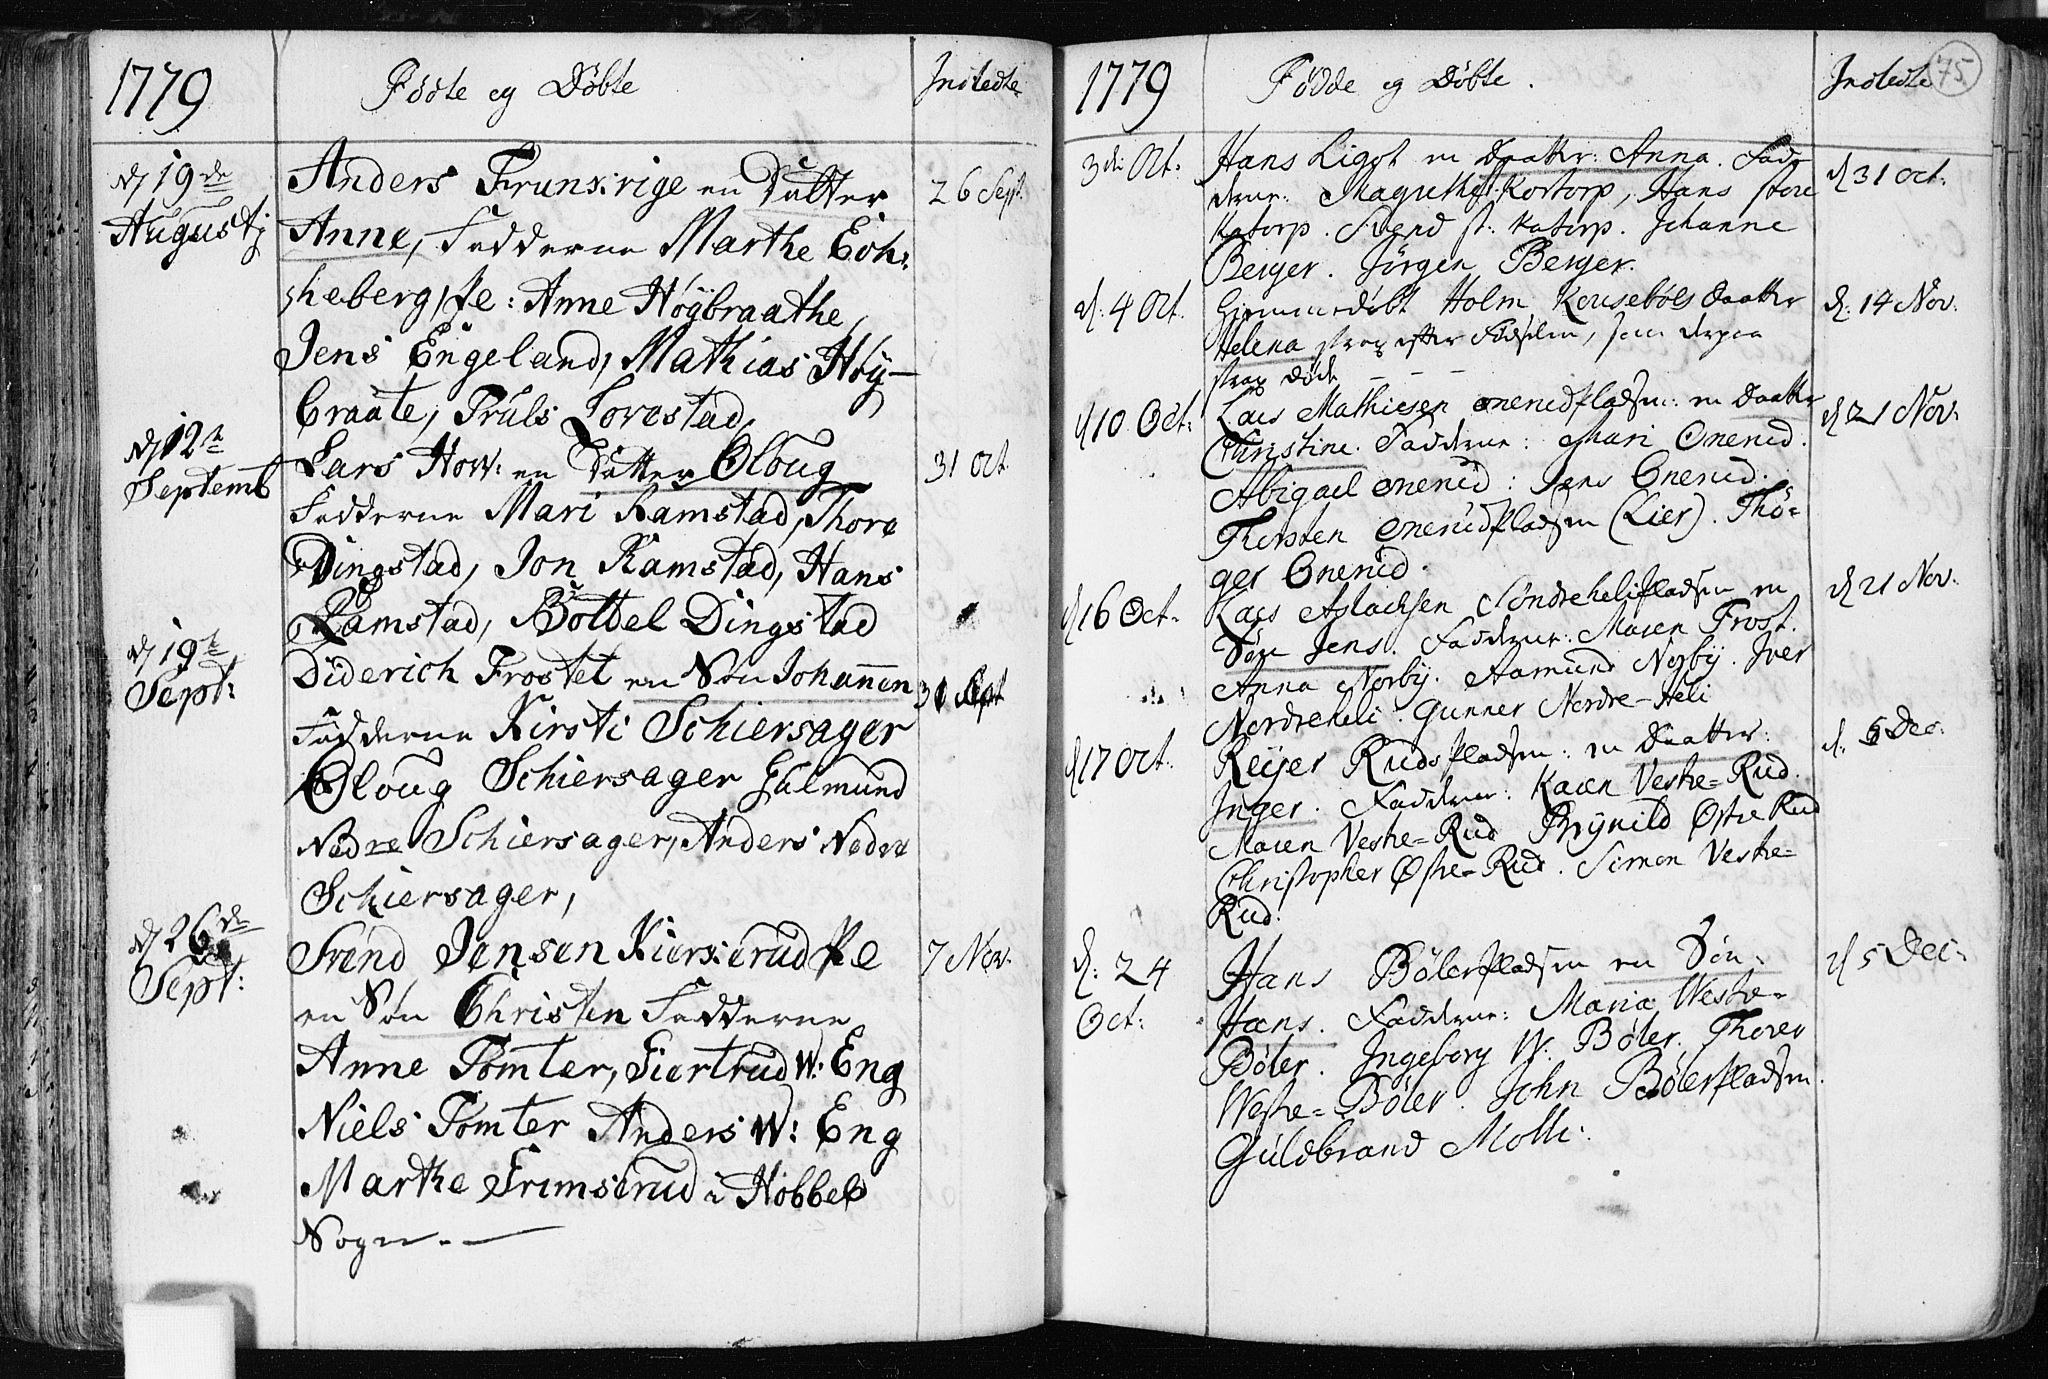 1779
Fødte og Døbte
Indledte
d 19de
Augustj
Anders Frunsrige en Datter
26 Sept.
Anne, Fadderne Marthe Ech:
sheberg, Pe: Anne Höÿbraathe,
Jens Engeland, Mathias Höÿ-
braate, Truls Lorestad,
d 12te
Septemb
Lars How: en Datter Oloug
31 Oct.
Fadderne Mari Ramstad, Thore
Dingstad, Jon Ramstad, Hans
Ramstad, Bottel Dingstad
d 19te
Sept:
Diderich Frostet en Søn Johannen
31 Sept
Fadderne Kirsti Schiersager
Oloug Schiersager Halmund
Nedre Schiersager, Anders Nedre
Schiersager,
d 26de
Sept:
Svend Jensen Kierserud Pe
7 Nov:
en Søn Christen Fadderne
Anne Tomter, Siertrud W: Eng
Niels Tomter Anders W: Eng
Marthe Frimserud i Hobbel
Sogn.
1779
Fødde og Døbte.
Indledte
75
3de Oct:
Hans Ligot en Daatter: Anna. Fad-
d 31 Oct:
derne: Magrethe Kortorp, Hans store
Katorp. Svend st: Katorp. Johanne
Berger. Jörgen Berger.
d: 4 Oct.
Hiemmedøbt Holm Kousebøls Daatter
d: 14 Nov:
Helena strax efter Fødselen, som derpaa
strax døde - - -
d 10 Oct:
Lars Mathiesen Onerudpladsen: en Daatter
d 21 Nov:
Christine. Fadderne: Mari Onerud.
Abigael Onerud: Jens Onerud.
Thorsten Onerudpladsen (Lier). Thö-
ger Onerud.
d 16 Oct:
Lars Aslachsen Söndrehelipladsen en
d 21 Nov:
Søn Jens. Fadderne: Maren Frost.
Anna Norbÿ. Aamund Norbÿ. Iver
Nordreheli. Gunner Nordre-Heli
d 17 Oct:
Reÿer Rudspladsen: en Daatter:
d: 5 Dec:
Inger. Fadderne: Karen Vestre=Rud.
Maren Vestre=Rud Brÿnild Østre Rud
Christopher Østre=Rud. Simen Vestre=
Rud.
d: 24
Oct:
Hans Bølerpladsen en Søn:
d 5 Dec:
Hans. Fadderne: Maria Westre-
Bøler. Ingeborg W. Bøler. Thorer
Westre=Bøler. John Bølerpladsen.
Guldbrand Molli.